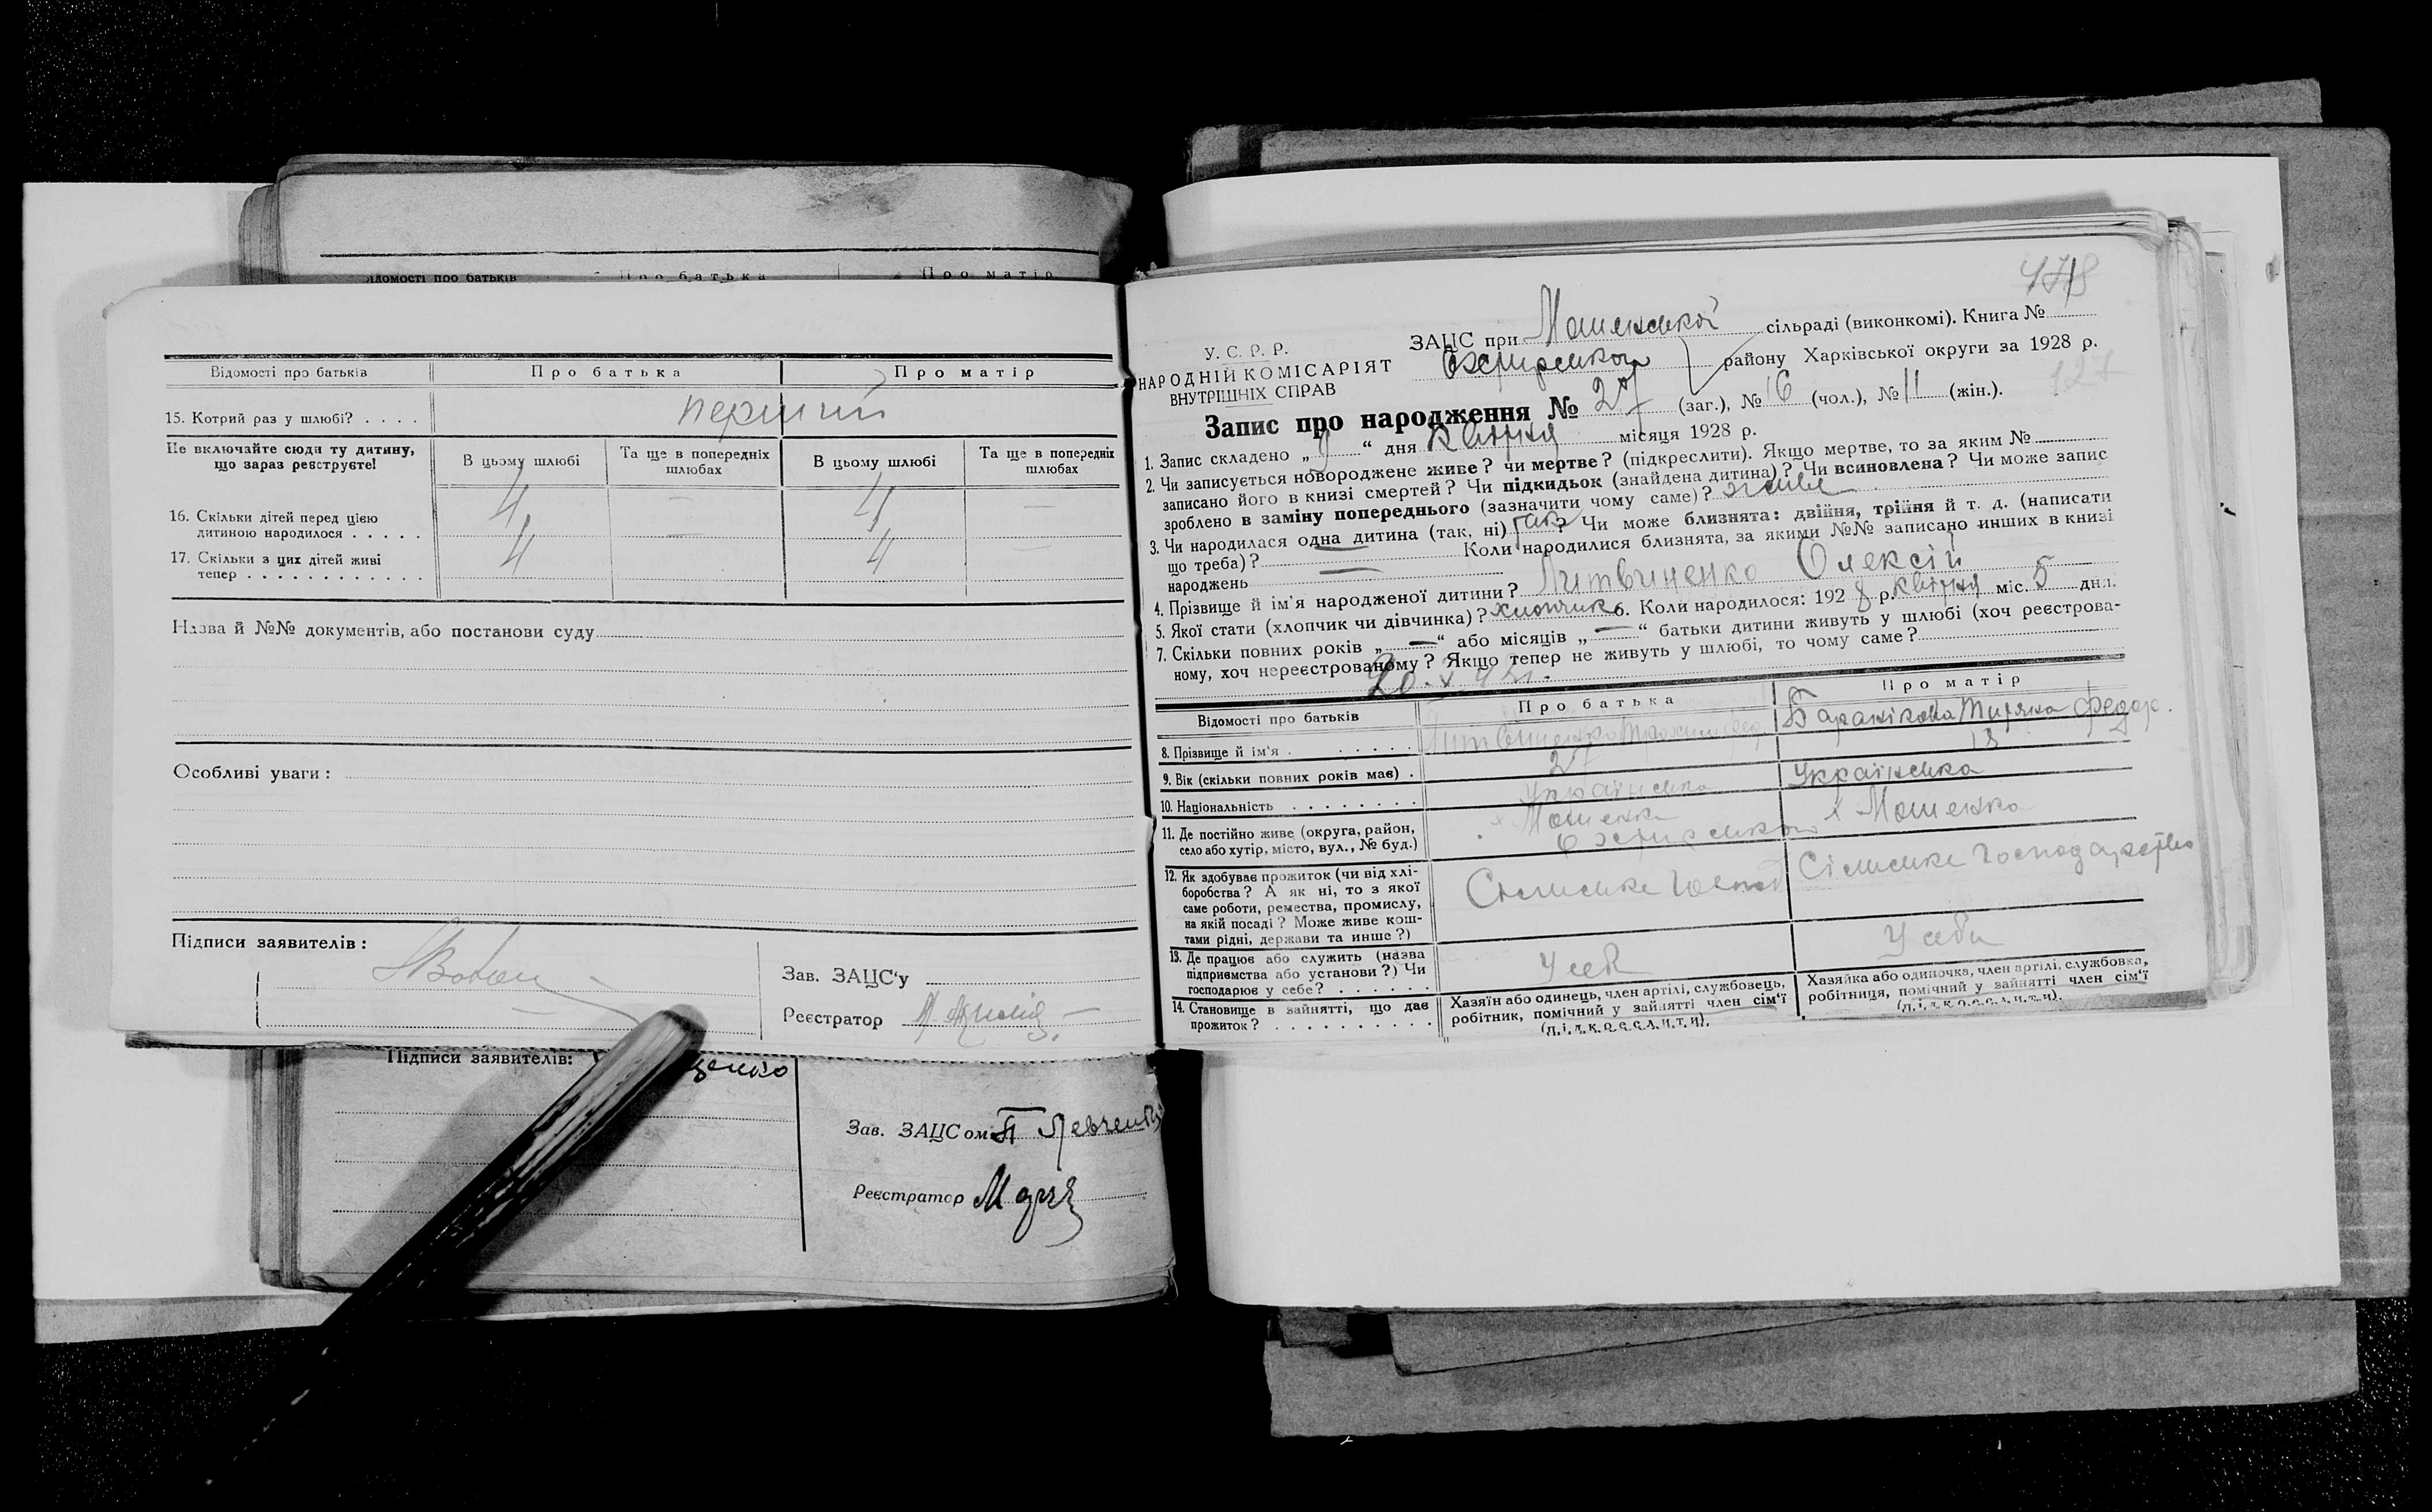 Відомості про батьків Про батька Про матір
Відомості про батьків Про батька Про матір
15. Котрий раз у шлюбі? . . . . перший
Не включайте сюди ту дитину, що зараз реєструєте!
В цьому шлюбі Та ще в попередніх шлюбах В цьому шлюбі Та ще в попередніх шлюбах
16. Скільки дітей перед цією
дитиною народилося . . . . . 4 — 4 —
17. Скільки з цих дітей живі
тепер . . . . . . . . . . . . 4 — 4 —
Назва й №№ документів, або постанови суду
Особливі уваги:
Підписи заявителів:
Зав. ЗАЦС'у
Реєстратор
Підписи заявителів:
Зав. ЗАЦСом П Левченко
Реєстратор
478
У. С. Р. Р.
НАРОДНІЙ КОМІСАРІЯТ
ВНУТРІШНІХ СПРАВ
ЗАЦС при Мошенської сільраді (виконкомі). Книга №
Охтирського району Харківської округи за 1928 р.
127
Запис про народження № 27 (заг.), № 16 (чол.), № 11 (жін.).
1. Запис складено „9“ дня Квітня місяця 1928 р.
2. Чи записується новороджене живе? чи мертве? (підкреслити). Якщо мертве, то за яким №
записано його в книзі смертей? Чи підкидьок (знайдена дитина)? Чи всиновлена? Чи може запис
зроблено в заміну попереднього (зазначити чому саме)? живе
3. Чи народилася одна дитина (так, ні) так? Чи може близнята: двійня, трійня й т. д. (написати
що треба)? — Коли народилися близнята, за якими №№ записано инших в книзі
народжень —
4. Прізвище й ім'я народженої дитини? Литвиненко Олексій
5. Якої стати (хлопчик чи дівчинка)? хлопчик 6. Коли народилося: 1928 р. квітня міс. 5 дня.
7. Скільки повних років „—“ або місяців „—“ батьки дитини живуть у шлюбі (хоч реєстрова-
ному, хоч нереєстрованому? Якщо тепер не живуть у шлюбі, то чому саме?
Відомості про батьків Про батька Про матір
8. Прізвище й ім'я . . . . . . Литвиненко Федор.
9. Вік (скільки повних років має) . 27
10. Національність . . . . . . . . Українська Українська
11. Де постійно живе (округа, район,
село або хутір, місто, вул., № буд.) х Мошенка Охтирського х Мошенка
12. Як здобуває прожиток (чи від хлі-
боробства? А як ні, то з якої
саме роботи, ремества, промислу,
на якій посаді? Може живе кош-
тами рідні, держави та инше?) Сільське Господ Сільське Господарство
13. Де працює або служить (назва
підприємства або установи?) Чи
господарює у себе? . . . . . . У себе У себе
14. Становище в зайнятті, що дає
прожиток? . . . . . . . . . .
Хазяїн або одинець, член артілі, службовець,
робітник, помічний у зайнятті член сім'ї
(підкреслити).
Хазяйка або одиночка, член артілі, службовка,
робітниця, помічний у зайнятті член сім'ї
(підкреслити).